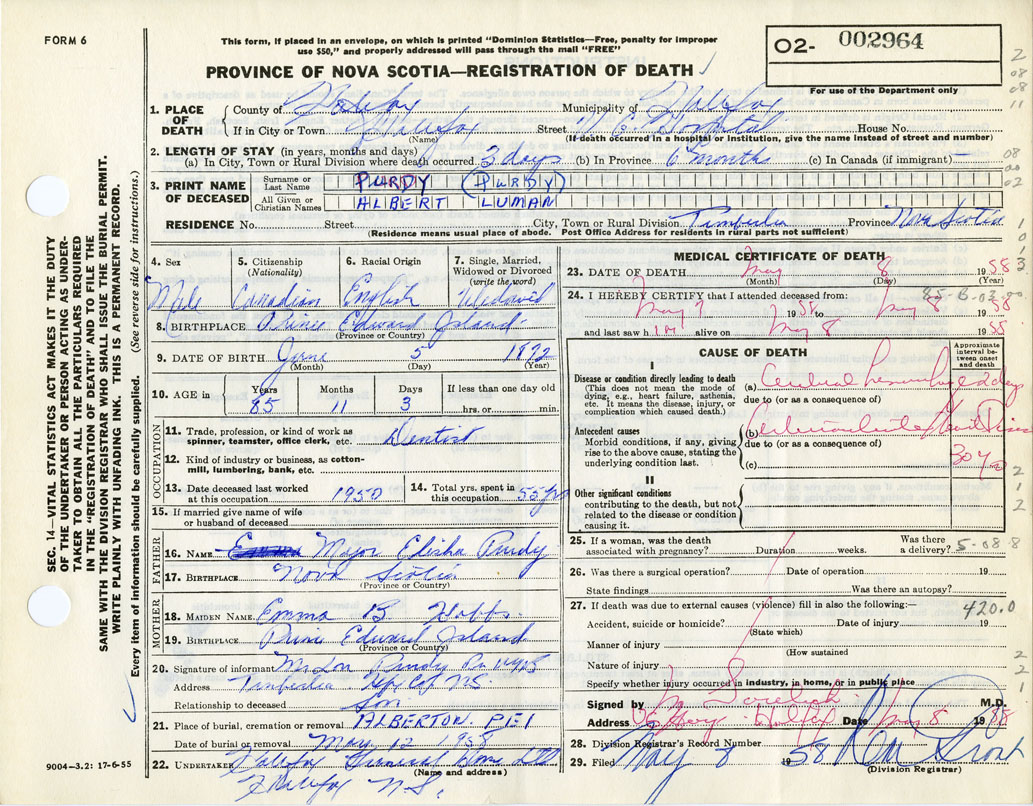 FORM 6
This form, if placed in an envelope, on which is printed "Dominion Statistics—Free, penalty for improper
use $50," and properly addressed will pass through the mail "FREE"
02- 002964
For use of the Department only
PROVINCE OF NOVA SCOTIA—REGISTRATION OF DEATH
1. PLACE OF DEATH
County of Halifax Municipality of Halifax
If in City or Town Halifax Street V G Hospital House No.
(Name) (If death occurred in a hospital or institution, give the name instead of street and number)
2. LENGTH OF STAY (in years, months and days)
(a) In City, Town or Rural Division where death occurred 3 days (b) In Province 6 months (c) In Canada (if immigrant) —
3. PRINT NAME OF DECEASED
Surname or Last Name PURDY (PURDY)
All Given or Christian Names ALBERT LUMAN
RESIDENCE No. Street City, Town or Rural Division Timberlea Province Nova Scotia
(Residence means usual place of abode. Post Office Address for residents in rural parts not sufficient)
4. Sex Male
5. Citizenship (Nationality) Canadian
6. Racial Origin English
7. Single, Married, Widowed or Divorced (write the word)
8. BIRTHPLACE Prince Edward Island
(Province or Country)
9. DATE OF BIRTH June 5 1872
(Month) (Day) (Year)
10. AGE in Years 85 Months 11 Days 3 If less than one day old hrs. or min.
OCCUPATION
11. Trade, profession, or kind of work as spinner, teamster, office clerk, etc. Dentist
12. Kind of industry or business, as cotton-mill, lumbering, bank, etc.
13. Date deceased last worked at this occupation 1950
14. Total yrs. spent in this occupation 55 yrs
15. If married give name of wife or husband of deceased
FATHER
16. NAME Major Elisha Purdy
17. BIRTHPLACE Nova Scotia
(Province or Country)
MOTHER
18. MAIDEN NAME Emma B
19. BIRTHPLACE Prince Edward Island
(Province or Country)
20. Signature of informant Purdy
Address Timberlea N.S.
Relationship to deceased Son
21. Place of burial, cremation or removal ALBERTON PEI
Date of burial or removal May 12 1958
22. UNDERTAKER Halifax Funeral Home Ltd
(Name and address)
Halifax N.S.
MEDICAL CERTIFICATE OF DEATH
23. DATE OF DEATH May 8 1958
(Month) (Day) (Year)
24. I HEREBY CERTIFY that I attended deceased from:
May 7 1958 to May 8 1958
and last saw him alive on May 8 1958
CAUSE OF DEATH
Approximate interval between onset and death
I
Disease or condition directly leading to death
(This does not mean the mode of dying, e.g., heart failure, asthenia, etc. It means the disease, injury, or complication which caused death.)
(a) Cerebral hemorrhage 2 days
due to (or as a consequence of)
Antecedent causes
Morbid conditions, if any, giving rise to the above cause, stating the underlying condition last.
(b) Heart
due to (or as a consequence of)
(c)
II
Other significant conditions contributing to the death, but not related to the disease or condition causing it.
25. If a woman, was the death associated with pregnancy? Duration weeks. Was there a delivery? 5-08-8
26. Was there a surgical operation? Date of operation 19
State findings Was there an autopsy?
27. If death was due to external causes (violence) fill in also the following:— 420.0
Accident, suicide or homicide? Date of injury 19
(State which)
Manner of injury
(How sustained
Nature of injury
Specify whether injury occurred in industry, in home, or in public place
Signed by M.D.
Address Halifax Date May 8 1958
28. Division Registrar's Record Number
29. Filed May 8 1958
(Division Registrar)
SEC. 14—VITAL STATISTICS ACT MAKES IT THE DUTY
OF THE UNDERTAKER OR PERSON ACTING AS UNDER-
TAKER TO OBTAIN ALL THE PARTICULARS REQUIRED
IN THE "REGISTRATION OF DEATH" AND TO FILE THE
SAME WITH THE DIVISION REGISTRAR WHO SHALL ISSUE THE BURIAL PERMIT.
WRITE PLAINLY WITH UNFADING INK. THIS IS A PERMANENT RECORD.
Every item of information should be carefully supplied. (See reverse side for instructions.)
9004—3.2: 17-6-55